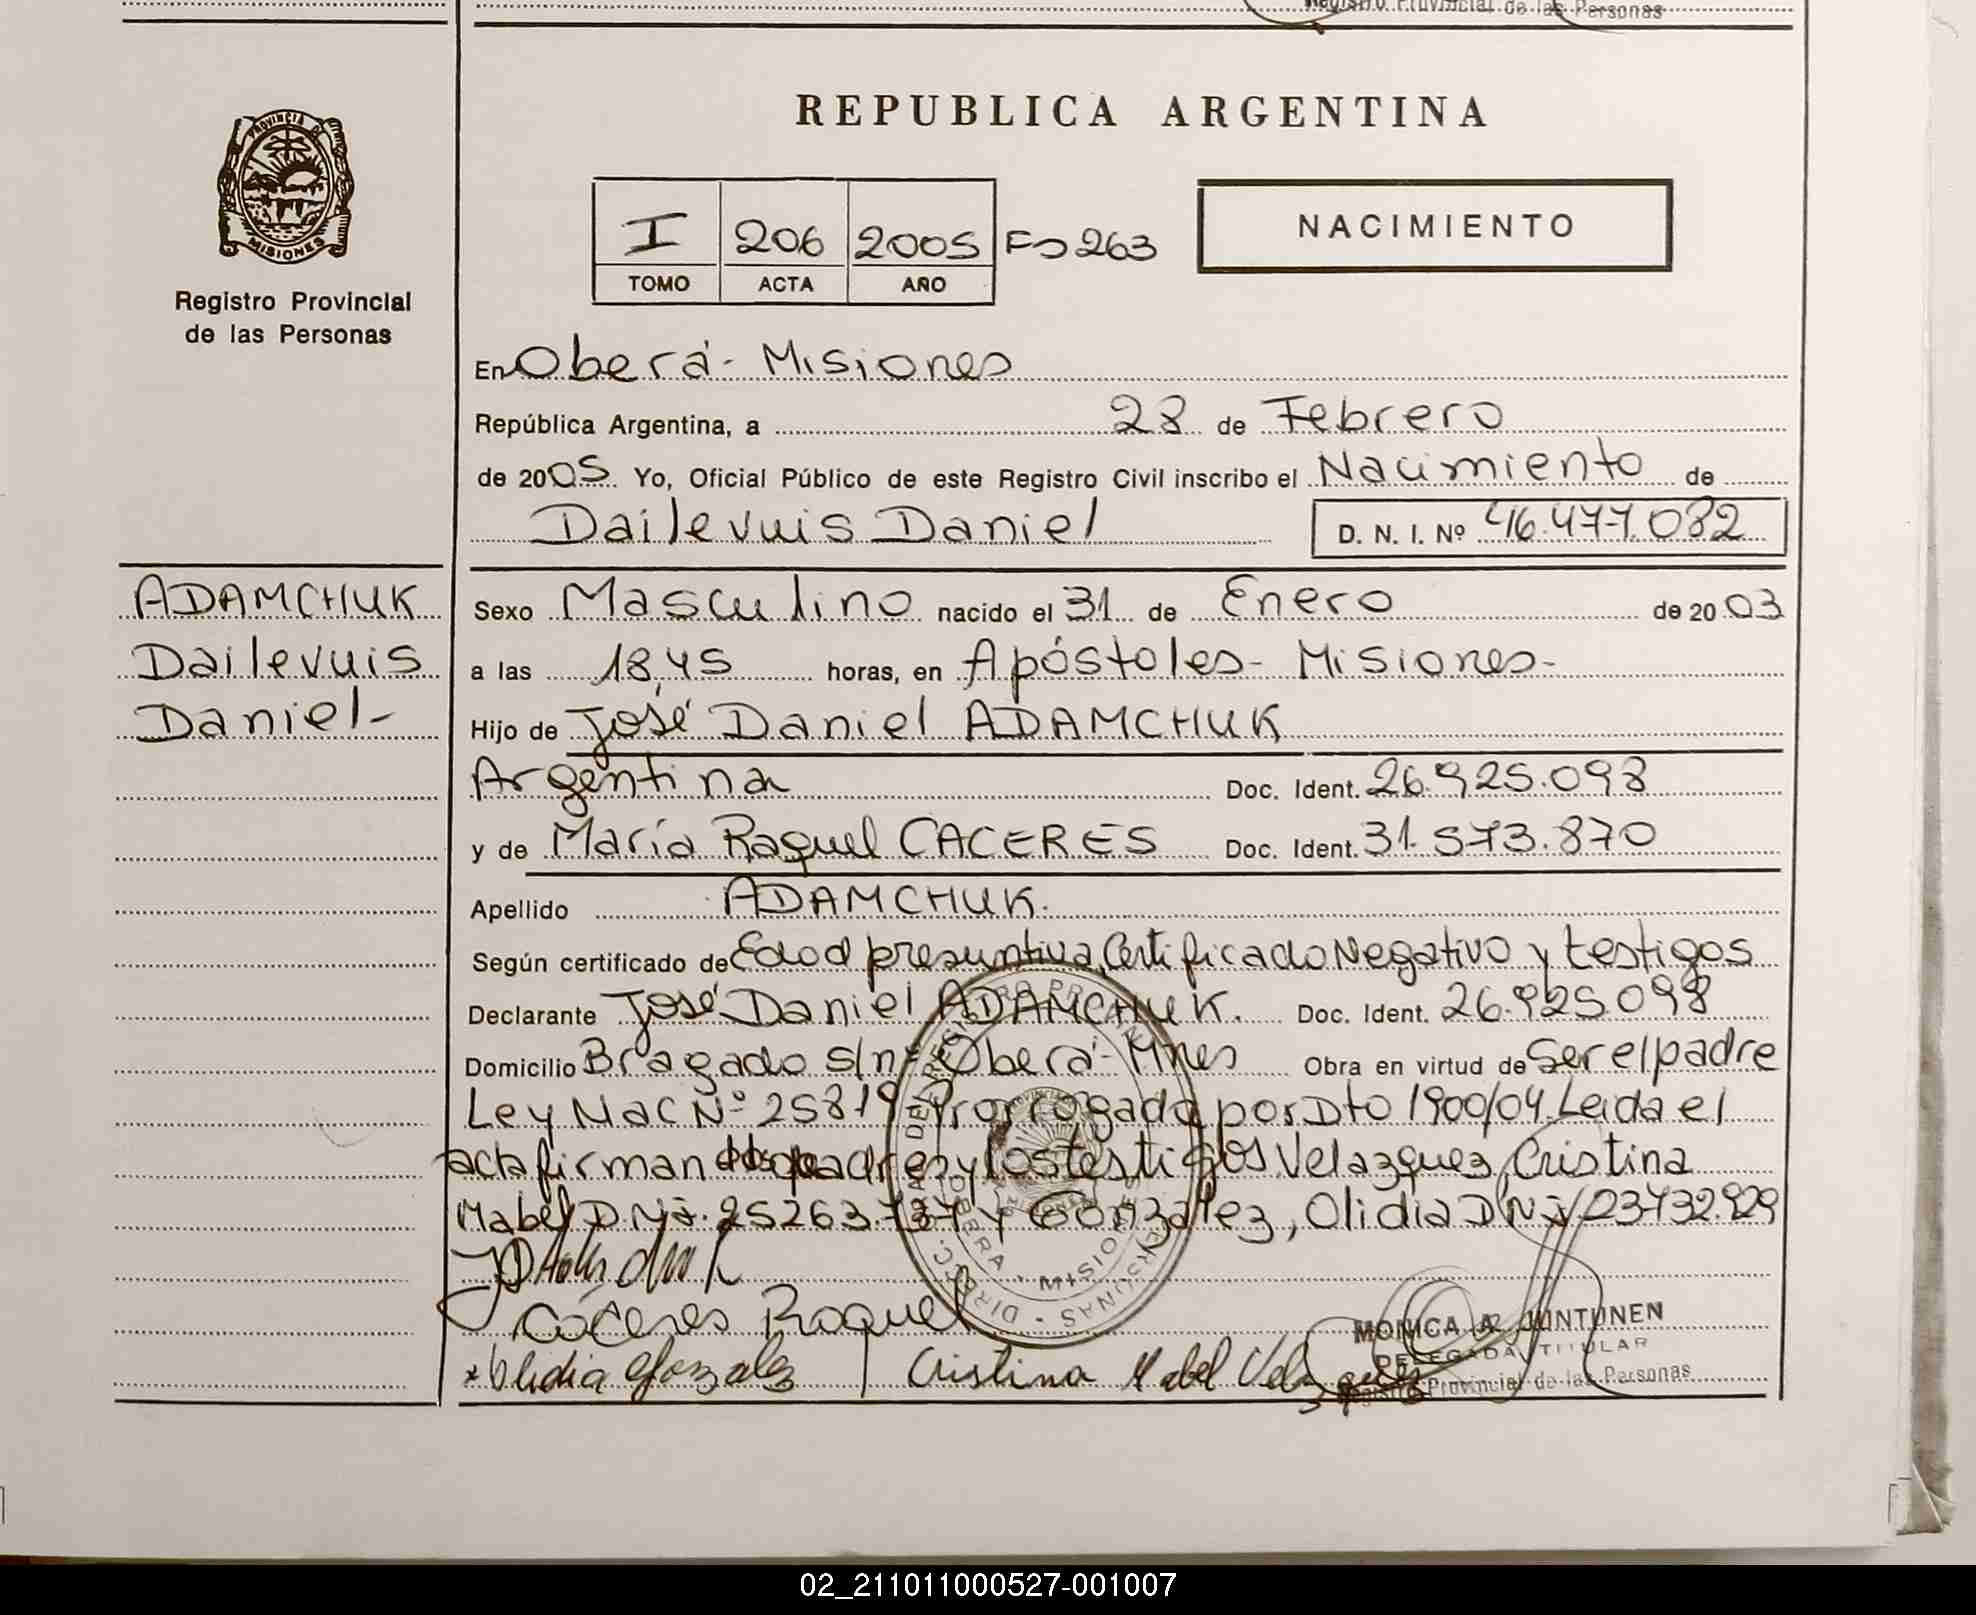 Registro Provincial de las Personas
REPUBLICA ARGENTINA
PROVINCIA DE
MISIONES
Registro Provincial
de las Personas
I 206 2005 Fo 263
TOMO ACTA AÑO
NACIMIENTO
En Oberá - Misiones
República Argentina, a 28 de Febrero
de 2005 Yo, Oficial Público de este Registro Civil inscribo el Nacimiento de
Dailevuis Daniel D. N. I. Nº 46.477.082
ADAMCHUK
Dailevuis
Daniel-
Sexo Masculino nacido el 31 de Enero de 2003
a las 18,45 horas, en Apóstoles - Misiones-
Hijo de José Daniel ADAMCHUK
Argentina Doc. Ident. 26.925.098
y de María Raquel CACERES Doc. Ident. 31.573.870
Apellido ADAMCHUK.
Según certificado de Edad presuntiva, Certificado Negativo y testigos
Declarante José Daniel ADAMCHUK. Doc. Ident. 26.925.098
Domicilio Bragado s/nº Oberá - Mnes Obra en virtud de Ser el padre
Ley Nac Nº 25819 Prorrogada por Dto 1900/04. Leida el
acta firman los padres y los testigos Velazquez, Cristina
Mabel D.N.I. 25263737 y Gonzalez, Olidia DNI 23732.929
Cáceres Raquel
Olidia Gonzalez Cristina Mabel Velazquez
MONICA A. JUNTUNEN
DELEGADA TITULAR
Registro Provincial de las Personas
02_211011000527-001007